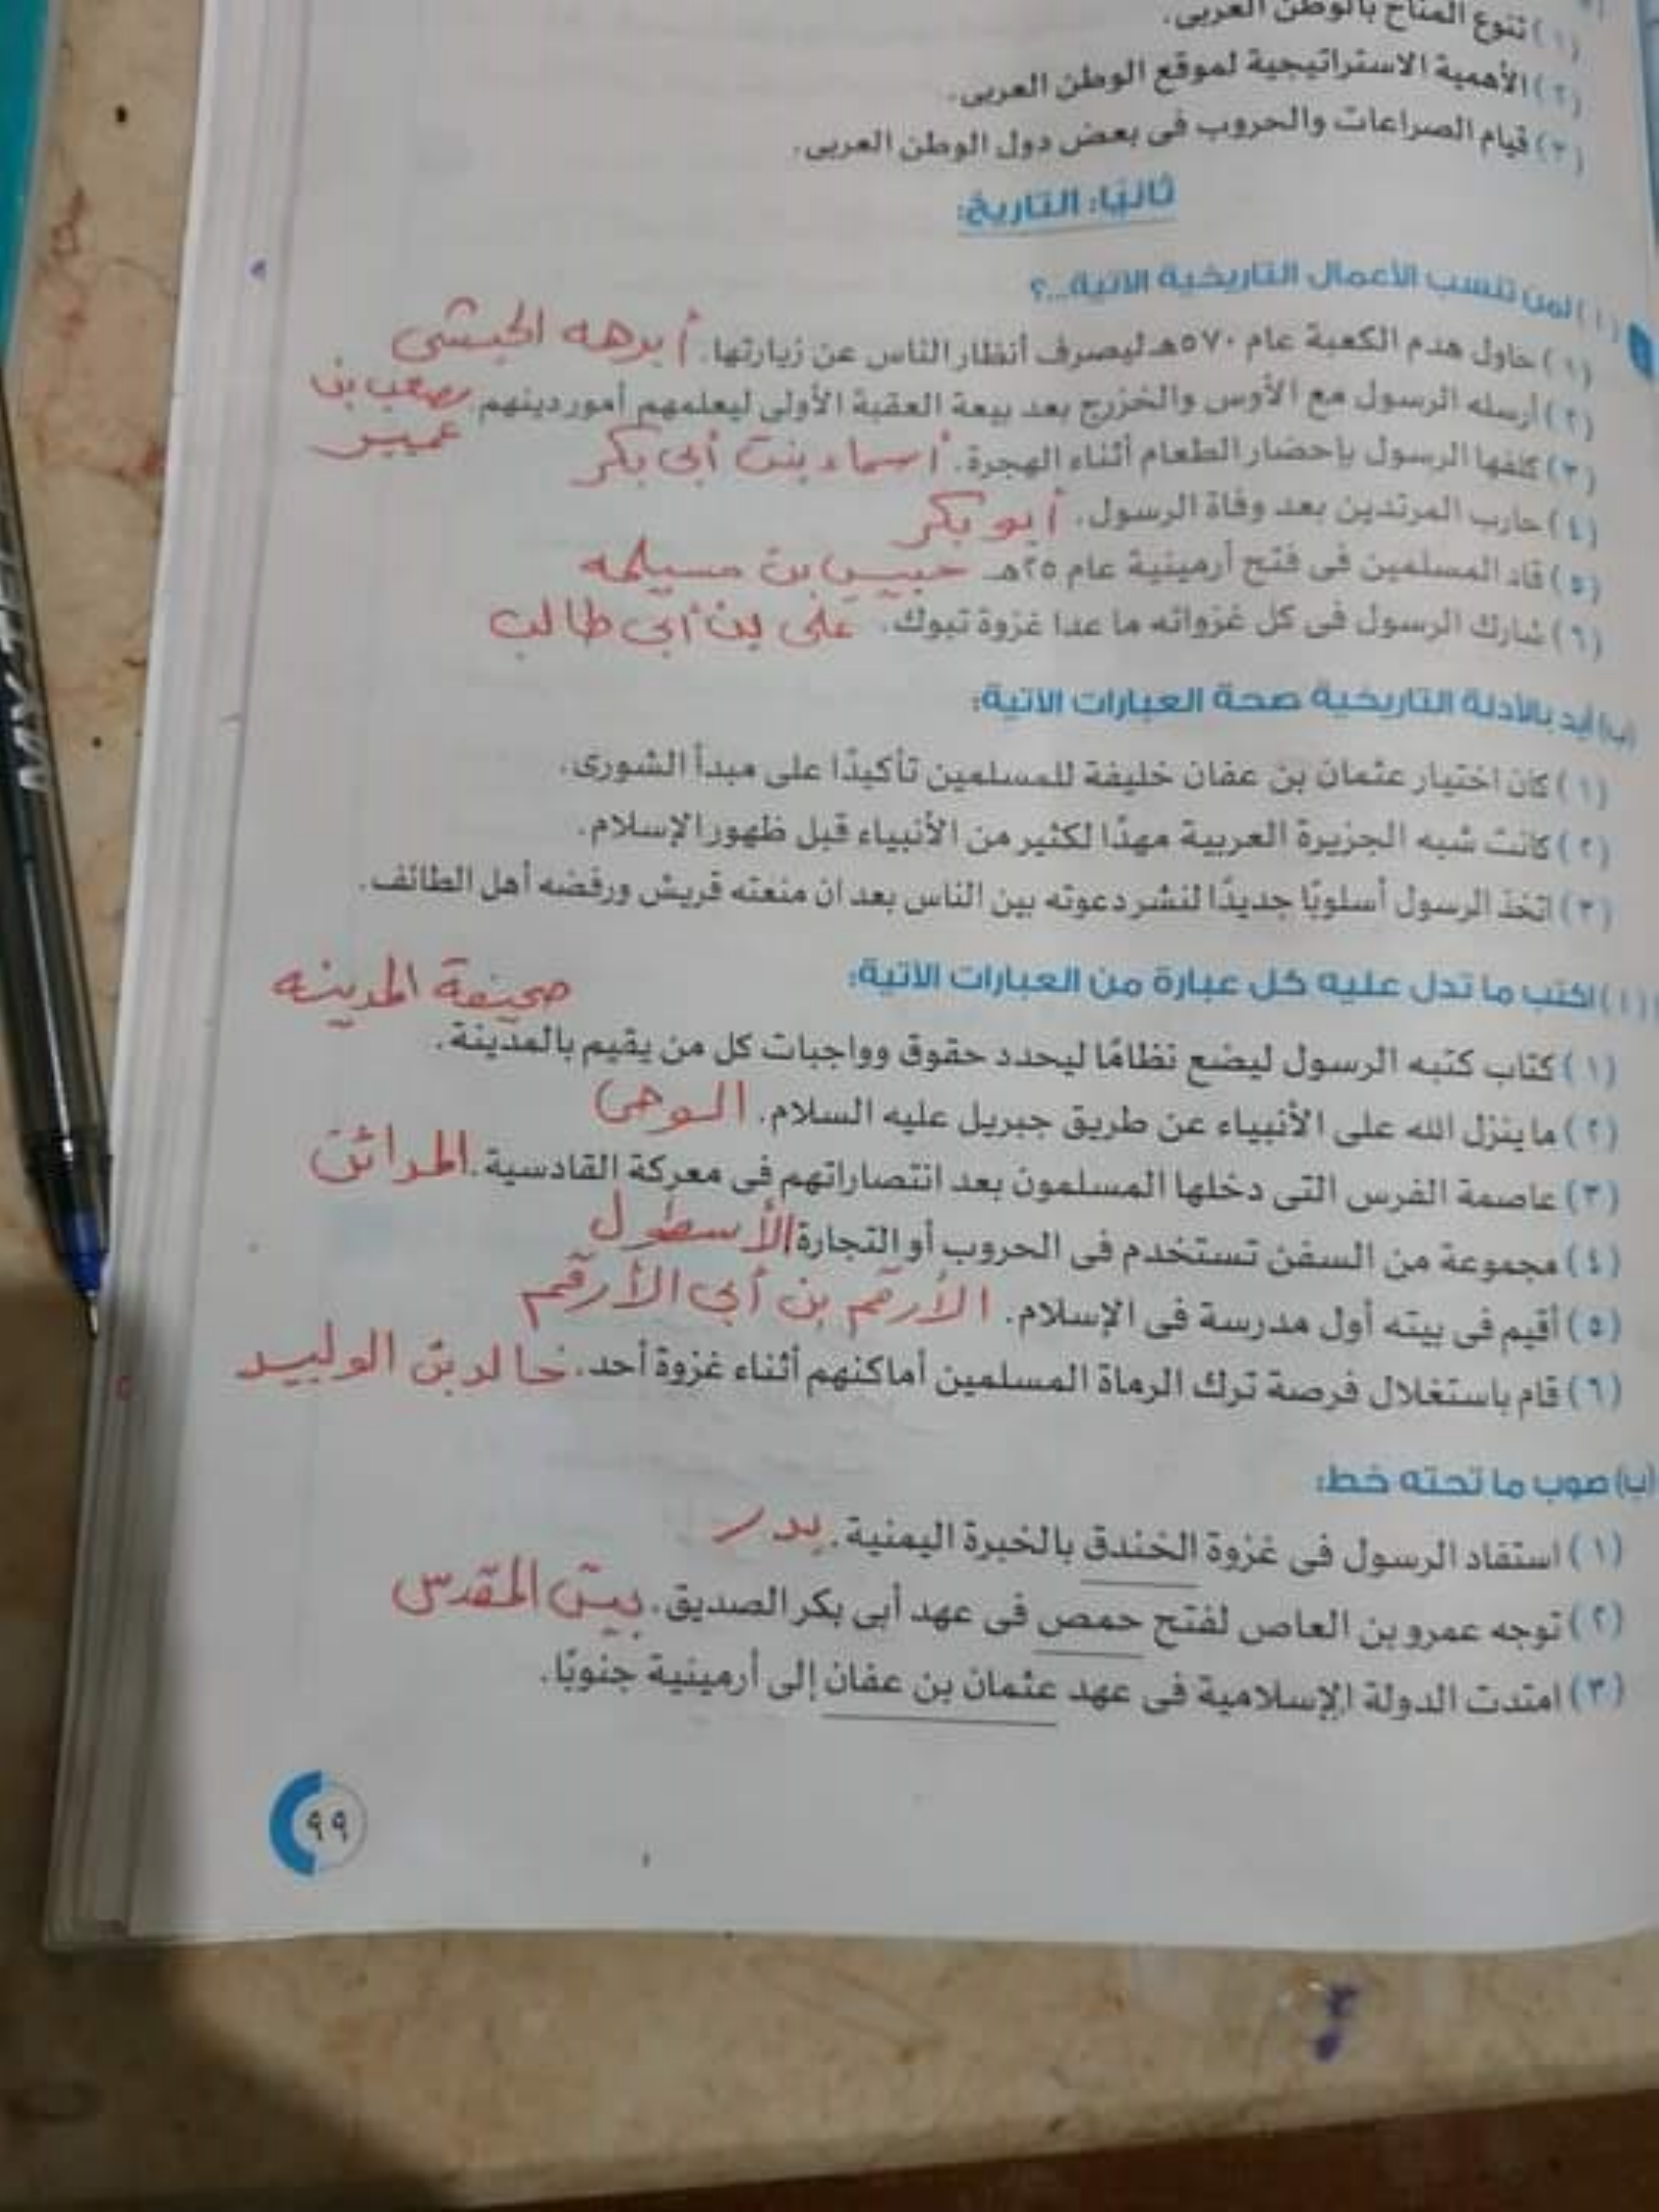 (١) تنوع المناخ بالوطن العربى.
(٢) الأهمية الاستراتيجية لموقع الوطن العربى.
(٣) قيام الصراعات والحروب فى بعض دول الوطن العربى.
ثانيًا: التاريخ:
(أ) لمن تنسب الأعمال التاريخية الآتية...؟
(١) حاول هدم الكعبة عام ٥٧٠هـ ليصرف أنظار الناس عن زيارتها. أبرهه الحبشى
(٢) أرسله الرسول مع الأوس والخزرج بعد بيعة العقبة الأولى ليعلمهم أمور دينهم. مصعب بن
عمير
(٣) كلفها الرسول بإحضار الطعام أثناء الهجرة. أسماء بنت أبى بكر
(٤) حارب المرتدين بعد وفاة الرسول. أبو بكر
(٥) قاد المسلمين فى فتح أرمينية عام ٢٥هـ حبيب بن مسيلمه
(٦) شارك الرسول فى كل غزواته ما عدا غزوة تبوك. على بن أبى طالب
(ب) أيد بالأدلة التاريخية صحة العبارات الآتية:
(١) كان اختيار عثمان بن عفان خليفة للمسلمين تأكيدًا على مبدأ الشورى.
(٢) كانت شبه الجزيرة العربية مهدًا لكثير من الأنبياء قبل ظهور الإسلام.
(٣) اتخذ الرسول أسلوبًا جديدًا لنشر دعوته بين الناس بعد أن منعته قريش ورفضه أهل الطائف.
(أ) اكتب ما تدل عليه كل عبارة من العبارات الآتية: صحيفة المدينه
(١) كتاب كتبه الرسول ليضع نظامًا ليحدد حقوق وواجبات كل من يقيم بالمدينة.
(٢) ما ينزل الله على الأنبياء عن طريق جبريل عليه السلام. الوحى
(٣) عاصمة الفرس التى دخلها المسلمون بعد انتصاراتهم فى معركة القادسية. المدائن
(٤) مجموعة من السفن تستخدم فى الحروب أو التجارة الأسطول
(٥) أقيم فى بيته أول مدرسة فى الإسلام. الأرقم بن أبي الأرقم
(٦) قام باستغلال فرصة ترك الرماة المسلمين أماكنهم أثناء غزوة أحد. خالد بن الوليد
(ب) صوب ما تحته خط:
(١) استفاد الرسول فى غزوة الخندق بالخبرة اليمنية. بدر
(٢) توجه عمرو بن العاص لفتح حمص فى عهد أبى بكر الصديق. بيت المقدس
(٣) امتدت الدولة الإسلامية فى عهد عثمان بن عفان إلى أرمينية جنوبًا.
٩٩